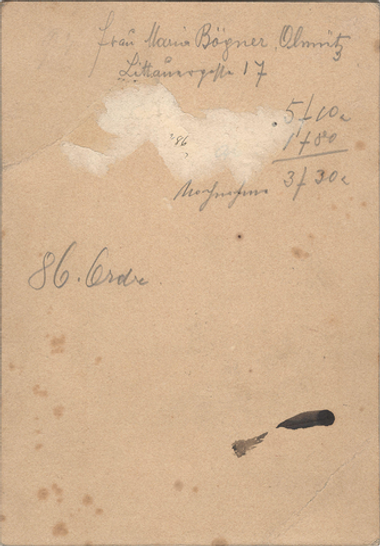 Frau Marie Bögner, Olmütz
Littauergasse 17
5f 10c
1f 80
Nachnahme 3f 30c
86
86. Ordre